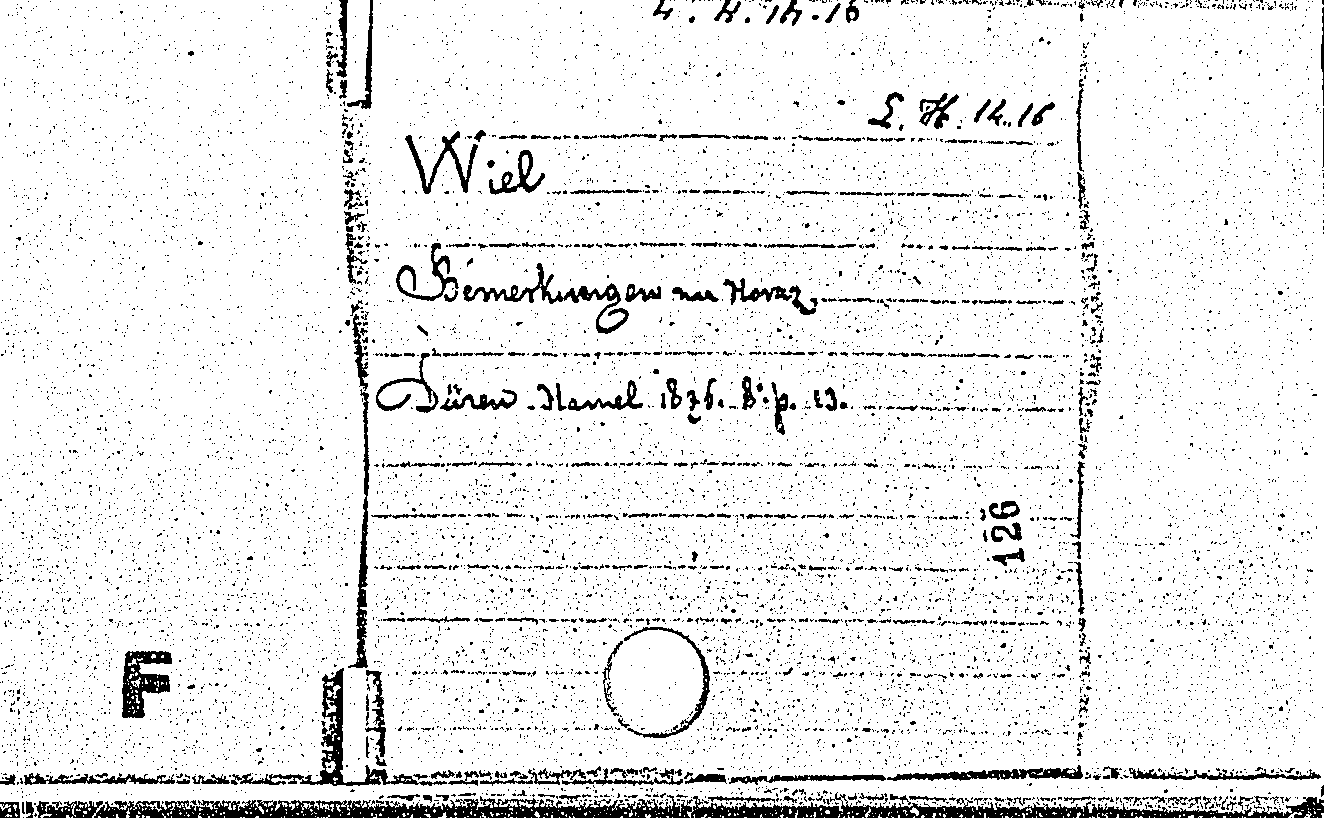 L. H. 14.16
Wiel
Bemerkungen zu Horaz.
Düren. Hamel 1876. 8°. p. 23.
126
F